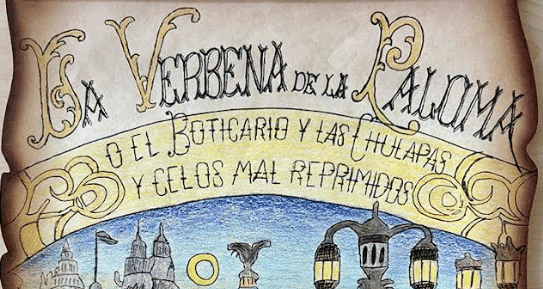 LA VERBENA DE LA PALOMA
O EL BOTICARIO Y LAS CHULAPAS
Y CELOS MAL REPRIMIDOS